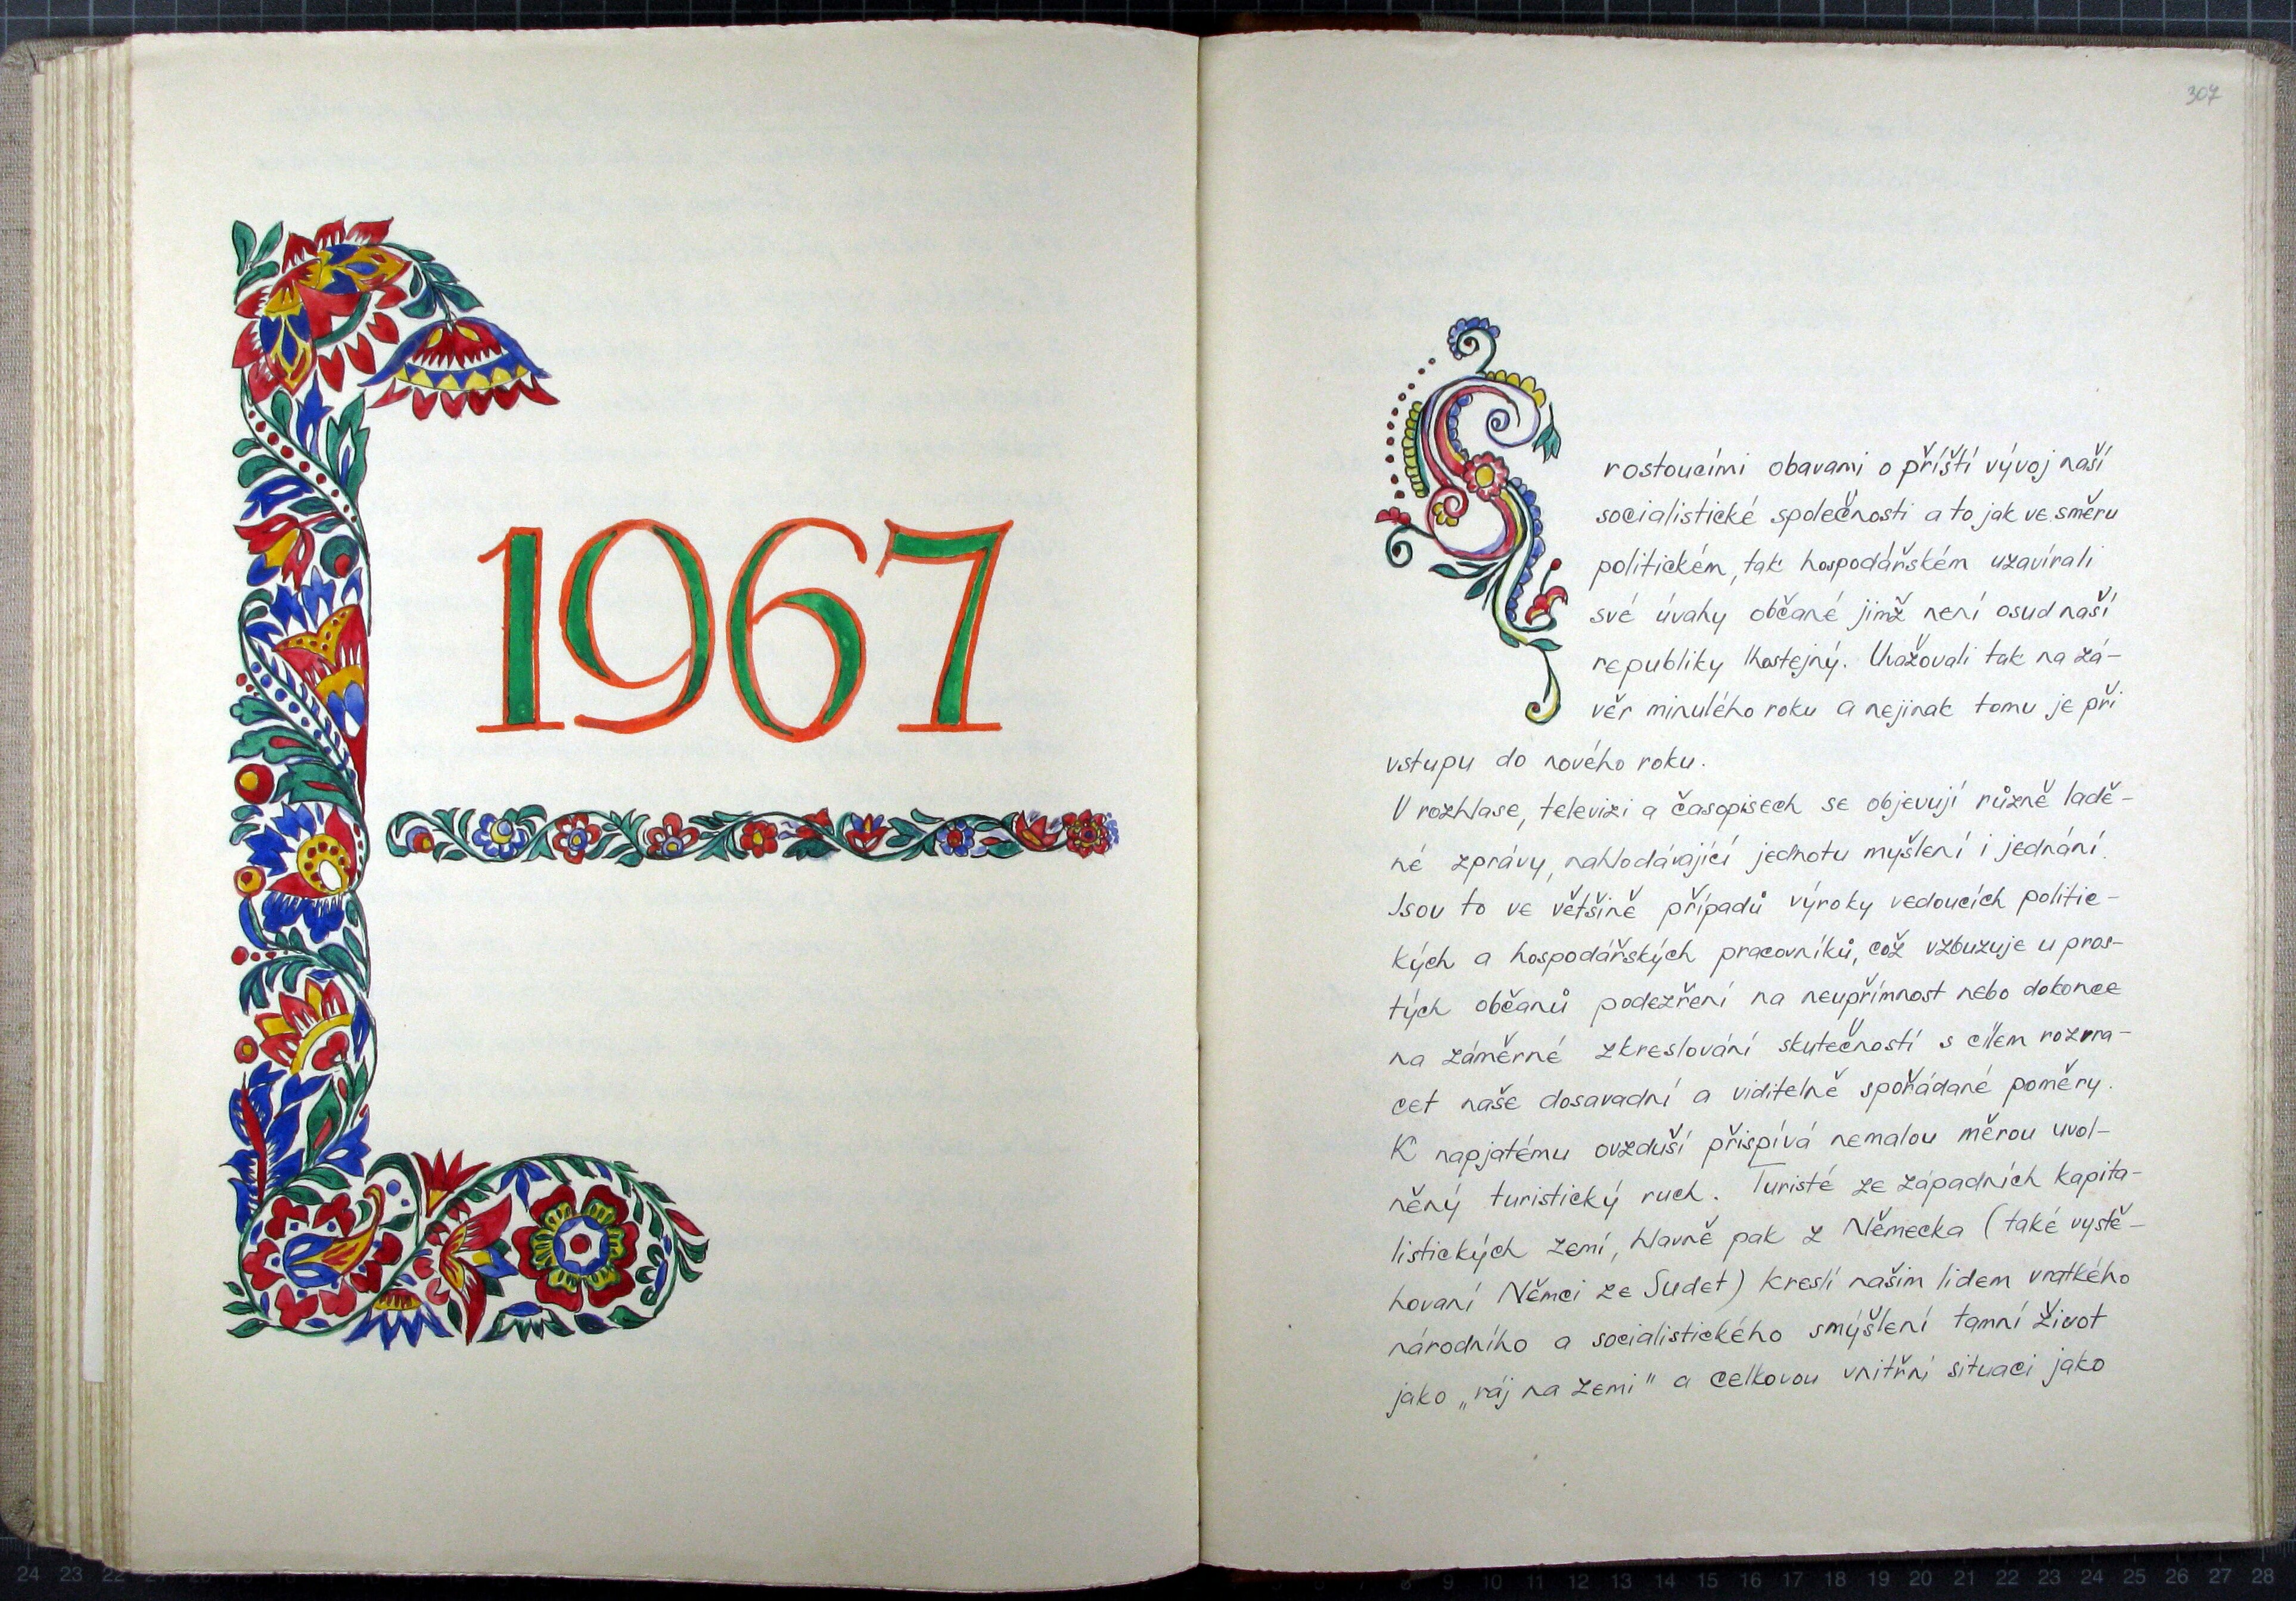 1967
307
S rostoucími obavami o příští vývoj naší
socialistické společnosti a to jak ve směru
politickém, tak hospodářském uzavírali
své úvahy občané jimž není osud naší
republiky lhostejný. Uvažovali tak na zá-
věr minulého roku a nejinak tomu je při
vstupu do nového roku.
V rozhlase, televizi a časopisech se objevují různě ladě-
né zprávy, nahlodávající jednotu myšlení i jednání.
Jsou to ve většině případů výroky vedoucích politic-
kých a hospodářských pracovníků, což vzbuzuje u pros-
tých občanů podezření na neupřímnost nebo dokonce
na záměrné zkreslování skutečností s cílem rozvra-
cet naše dosavadní a viditelně spořádané poměry.
K napjatému ovzduší přispívá nemalou měrou uvol-
něný turistický ruch. Turisté ze západních kapita-
listických zemí, hlavně pak z Německa (také vystě-
hovaní Němci ze Sudet) kreslí našim lidem vratkého
národního a socialistického smýšlení tamní život
jako „ráj na zemi" a celkovou vnitřní situaci jako